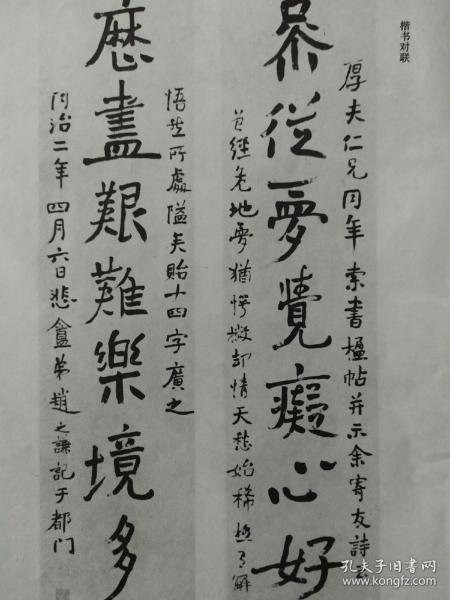 楷书对联
厚夫仁兄同年索書楹帖并示余寄友詩云
不從夢覺癡心好
曾經免地夢猶愕撥却情天愁始稀極有解
悟其所處隘矣貽十四字廣之
歷盡艱難樂境多
同治二年四月六日悲盦弟趙之謙記于都门
孔夫子旧书网